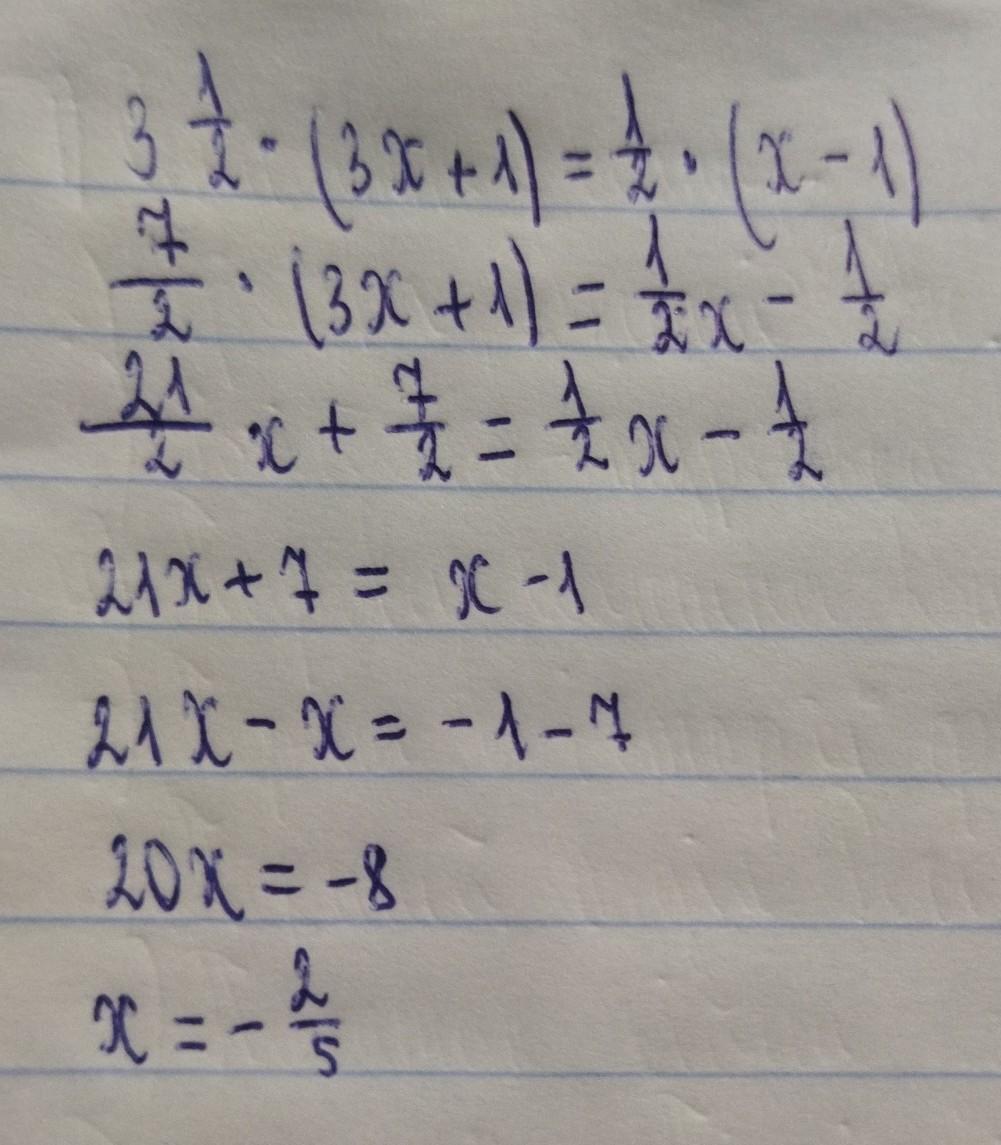 3 1/2 · (3x + 1) = 1/2 · (x - 1)
7/2 · (3x + 1) = 1/2 x - 1/2
21/2 x + 7/2 = 1/2 x - 1/2
21x + 7 = x - 1
21x - x = -1 - 7
20x = -8
x = - 2/5